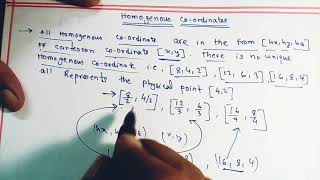 Homogenous Co-ordinates
→ All Homogenous Co-ordinate are in the from [hx, hy, h]
of cartesian co-ordinate [x, y]. There is no unique
Homogenous Co-ordinate i.e., [8, 4, 2], [12, 6, 3] [16, 8, 4]
all Represents the Physical point [4, 2]
→ [8/2, 4/2], [12/3, 6/3], [16/4, 8/4]
(x, y)
(16, 8, 4)